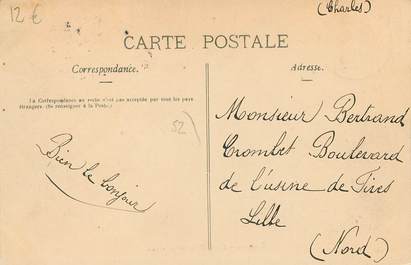 12 €
(Charles)
CARTE POSTALE
Correspondance.
Adresse.
La Correspondance au recto n'est pas acceptée par tout les pays
étrangers. (Se renseigner à la Poste.)
52
Bien le bonjour
Monsieur Bertrand
Crombet Boulevard
de l'usine de Fives
Lille
(Nord)